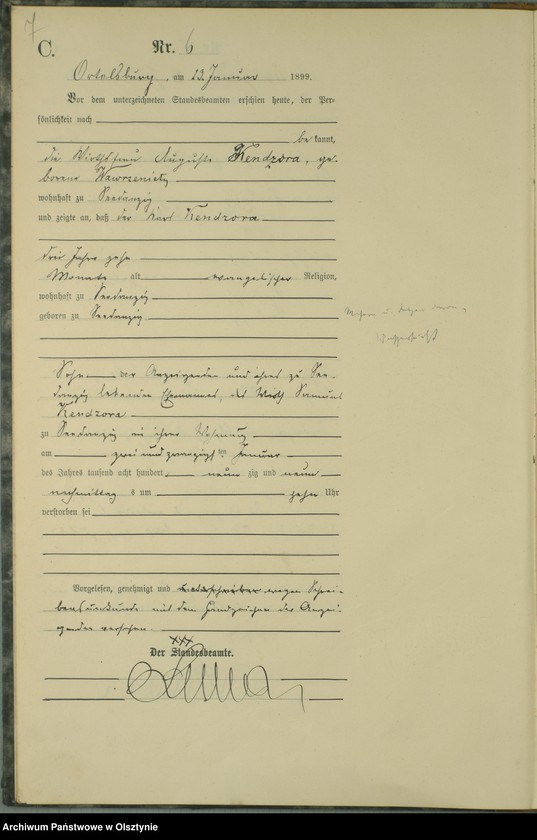 7
C.
Nr. 6
Ortelsburg, am 23. Januar 1899.
Vor dem unterzeichneten Standesbeamten erschien heute, der Per-
sönlichkeit nach
bekannt,
die Wirthsfrau Auguste Kendzora, ge-
borene
wohnhaft zu Seedanzig
und zeigte an, daß der Karl Kendzora
drei Jahre zehn
Monate alt evangelischer Religion,
wohnhaft zu Seedanzig
geboren zu Seedanzig
Sohn der Anzeigenden und ihres zu See-
danzig lebenden Ehemannes, des Wirth Samuel
Kendzora
zu Seedanzig in ihrer Wohnung
am zwei und zwanzigsten Januar
des Jahres tausend acht hundert neun zig und neun
nachmittags um zehn Uhr
verstorben sei
Vorgelesen, genehmigt und unterschrieben wegen Schrei-
bensunkunde mit dem Handzeichen der Anzei-
genden versehen.
XXX
Der Standesbeamte.
Archiwum Państwowe w Olsztynie